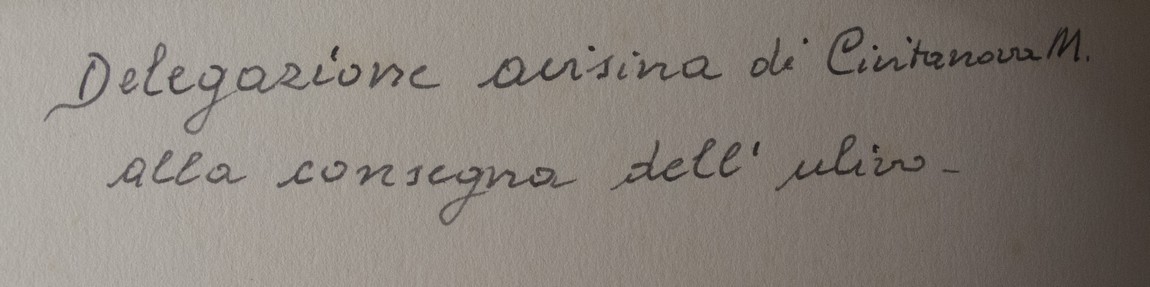 Delegazione avisina di Civitanova M.
alla consegna dell' ulivo -